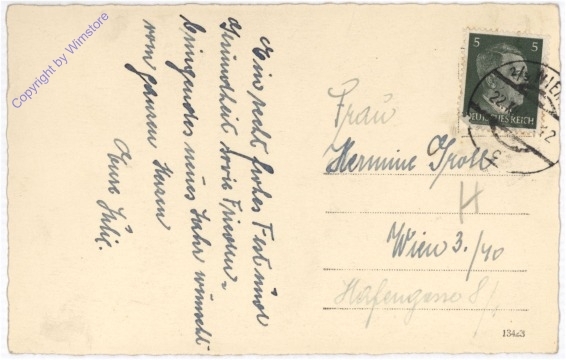 Ein recht frohes Fest und
Gesundheit sowie Frieden
bringendes neues Jahr wünscht
vom ganzen Herzen
Frau
Hermine
H
Wien 3./40
Hafengasse 8/
5 5
DEUTSCHES REICH
WIEN
22.
13423
Copyright by Wimstore